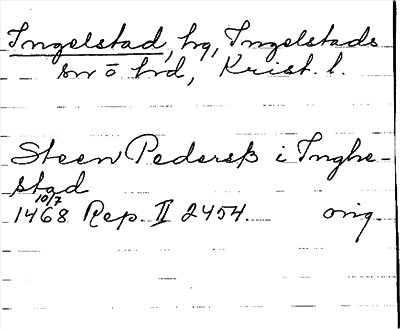 Ingelstad, hg, Ingelstads
sn o hd, Krist. l.
Steen Pederß i Inghe-
stad
10/7
1468 Rep. II 2454. orig.